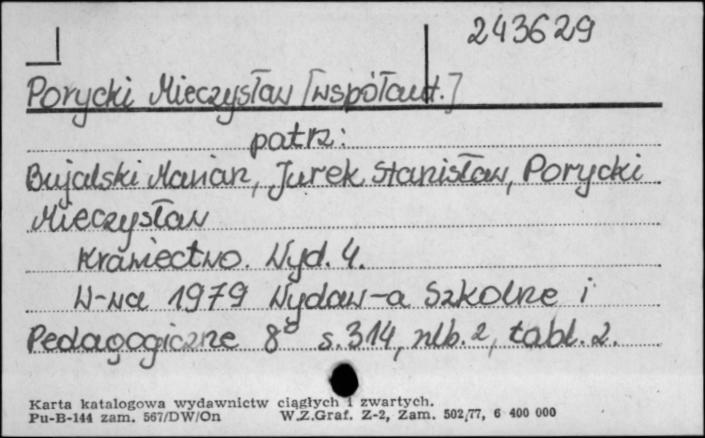 243629
Porycki Mieczysław [współaut.]
patrz:
Bujalski Marian, Jurek Stanisław, Porycki
Mieczysław
Krawiectwo. Wyd. 4.
W-wa 1979 Wydaw-a Szkolne i
Pedagogiczne 8° s. 314, nlb. 2, tabl. 2.
Karta katalogowa wydawnictw ciągłych i zwartych.
Pu-B-144 zam. 567/DW/On W.Z.Graf. Z-2, Zam. 502/77, 6 400 000